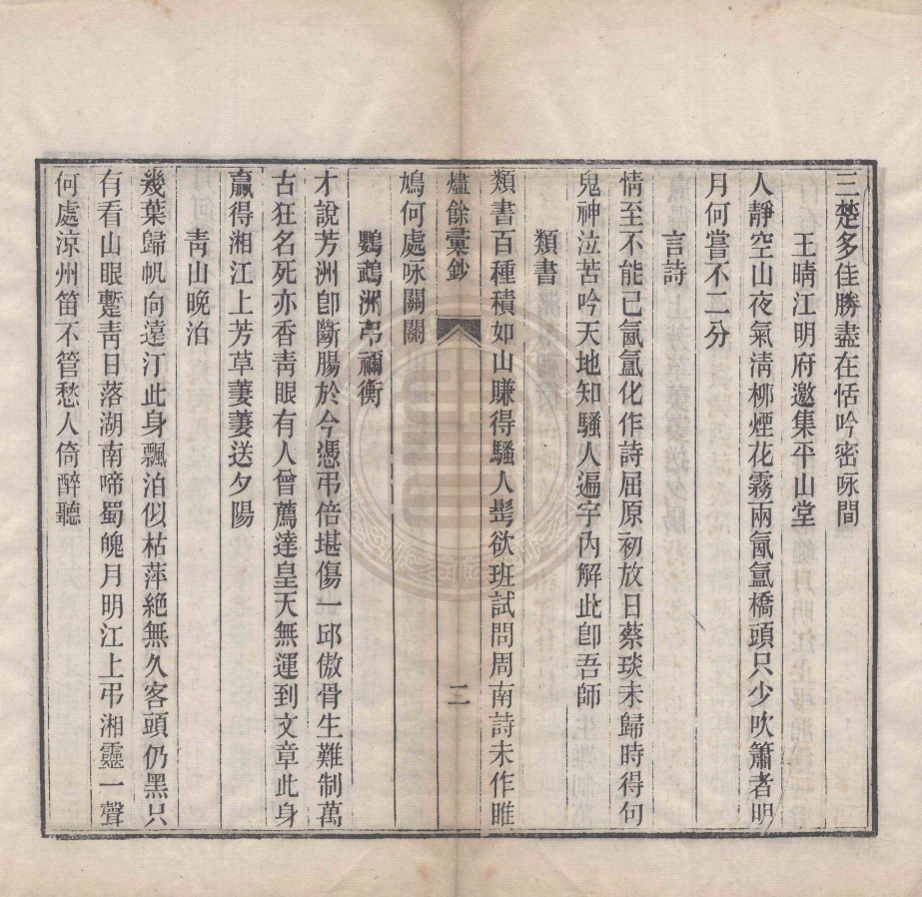 三楚多佳勝盡在恬吟密咏間
王晴江明府邀集平山堂
人靜空山夜氣淸柳煙花霧兩氤氳橋頭只少吹簫者明
月何嘗不二分
言詩
情至不能已氤氳化作詩屈原初放日蔡琰未歸時得句
鬼神泣苦吟天地知騷人遍宇內解此卽吾師
類書
類書百種積如山賺得騷人髩欲班試問周南詩未作睢
燼餘彙鈔
二
鳩何處咏關關
鸚鵡洲弔禰衡
才說芳洲卽斷腸於今憑弔倍堪傷一邱傲骨生難制萬
古狂名死亦香靑眼有人曾薦達皇天無運到文章此身
贏得湘江上芳草萋萋送夕陽
靑山晚泊
幾葉歸帆向遠汀此身飄泊似枯萍絶無久客頭仍黑只
有看山眼蹔靑日落湖南啼蜀魄月明江上弔湘靈一聲
何處涼州笛不管愁人倚醉聽